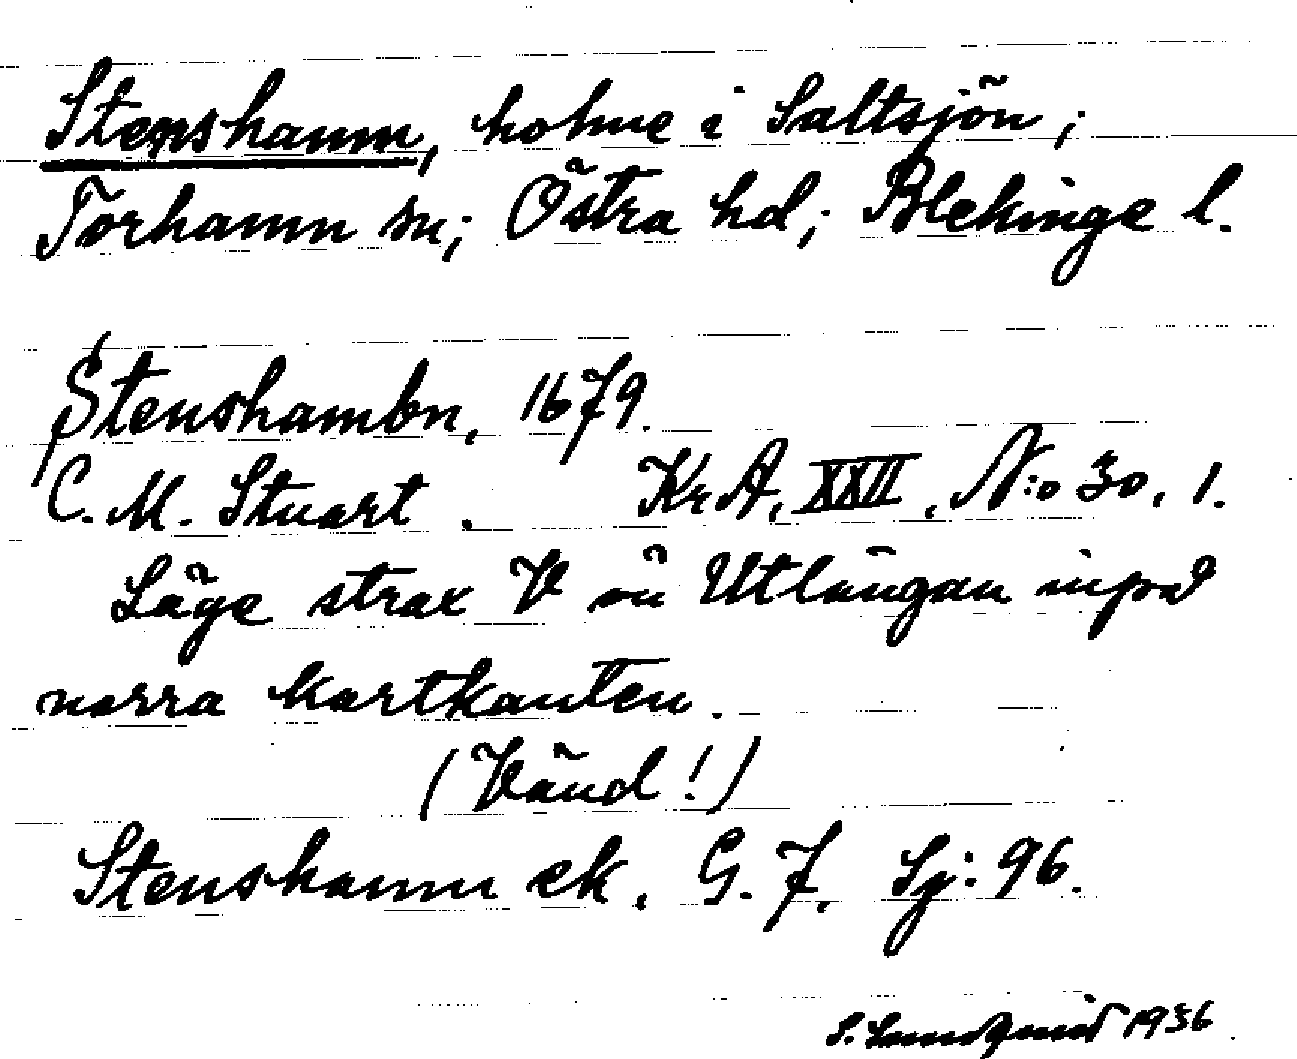 Stenshamn, holme i Saltsjön;
Torhamn sn; Östra hd; Blekinge l.
Stenshambn, 1679.
C. M. Stuart. KrA, XXII, N:o 30, 1.
Läge strax V om Utlängan inpå
norra kartkanten.
(Vänd!)
Stenshamn ek. G. 7. Sj: 96.
S. Lundqvist 1936